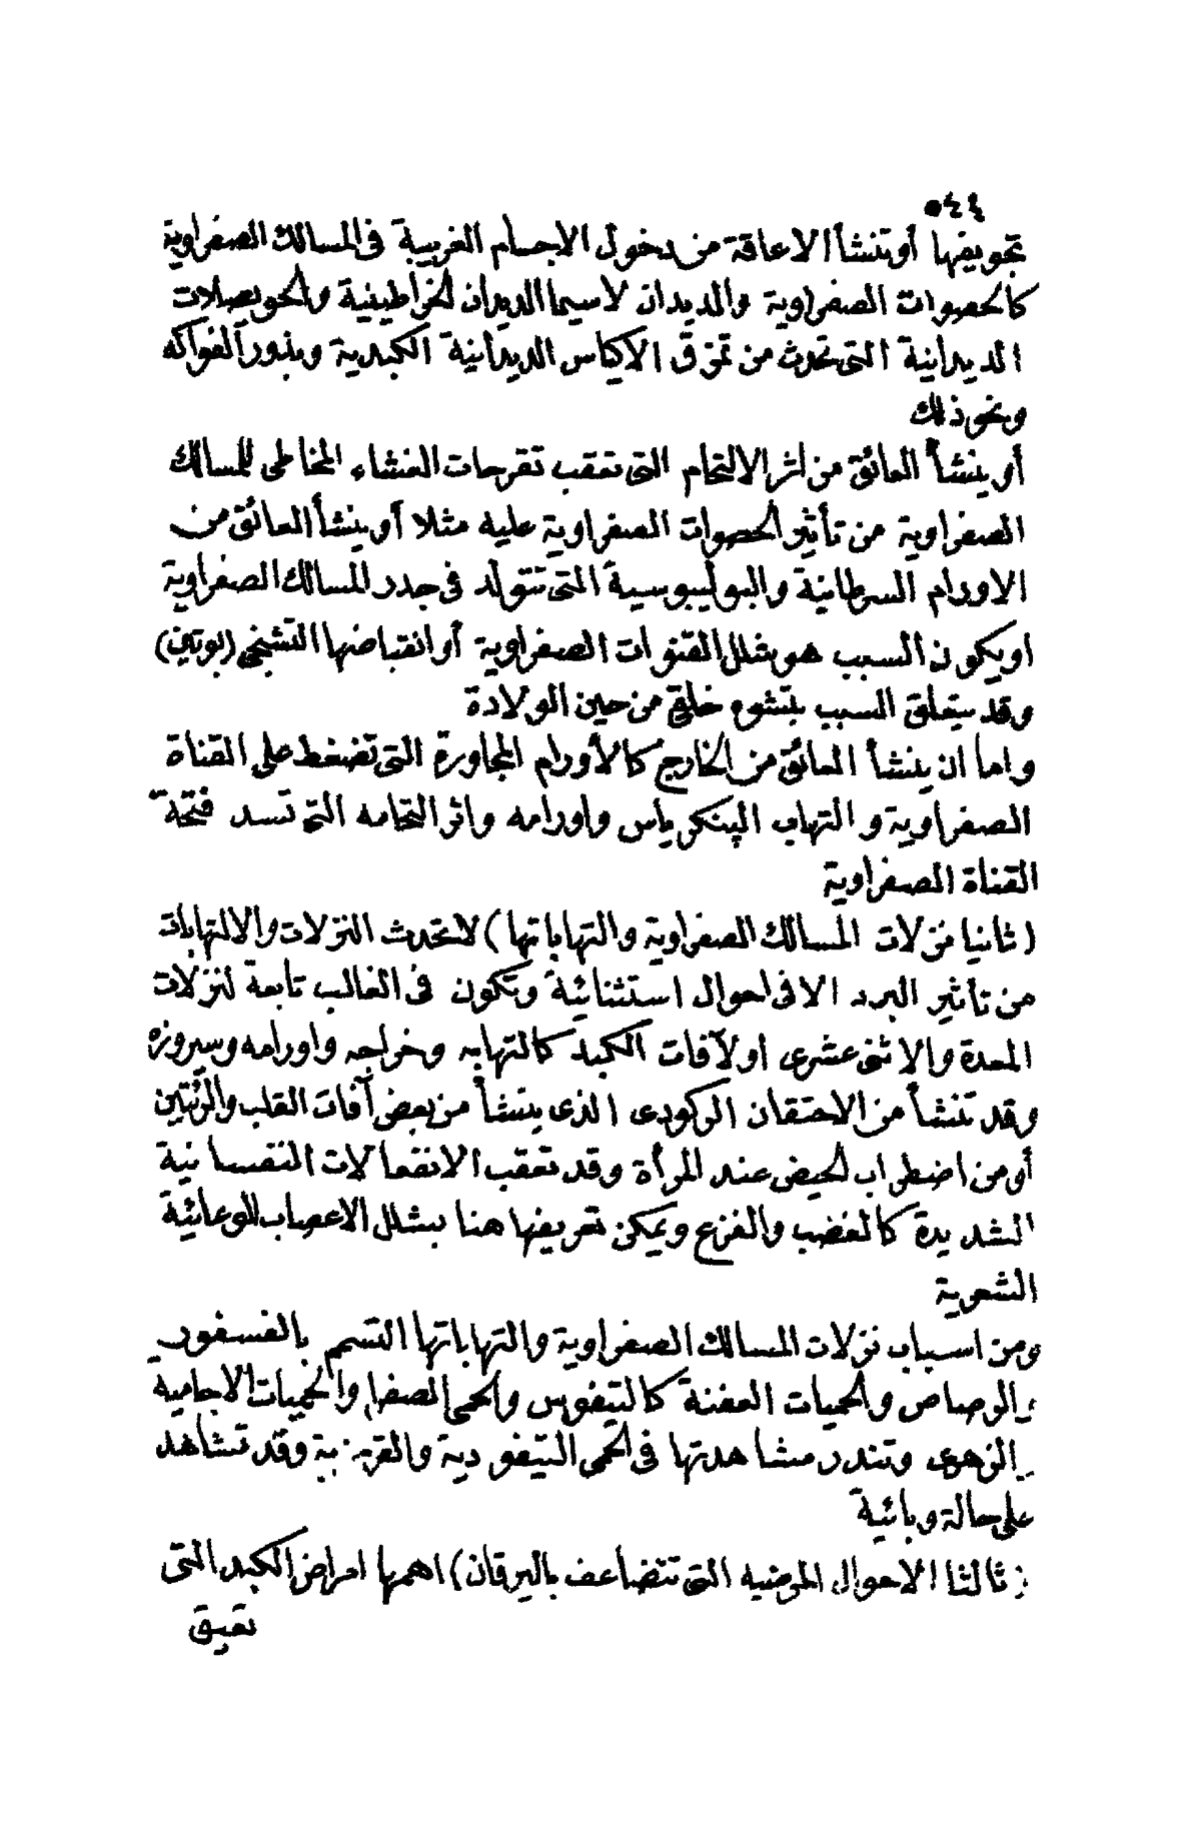 ٥٤٤
تجويفها أو تنشأ الاعاقة من دخول الاجسام الغريبة فى المسالك الصفراوية
كالحصوات الصفراوية والديدان لاسيما الديدان الخراطينية والحويصلات
الديدانية التى تحدث من تمزق الاكياس الديدانية الكبدية وبذور الفواكه
ونحو ذلك
أو ينشأ العائق من اثر الالتحام التى تعقب تقرحات الغشاء المخاطى للمسالك
الصفراوية من تأثير الحصوات الصفراوية عليه مثلا أو ينشأ العائق من
الاورام السرطانية والبوليبوسية التى تتولد فى جدر المسالك الصفراوية
او يكون السبب هو شلل القنوات الصفراوية أو انقباضها التشنجى (بوتين)
وقد يتعلق السبب بتشوه خلقى من حين الولادة
واما ان ينشأ العائق من الخارج كالأورام المجاورة التى تضغط على القناة
الصفراوية والتهاب البنكرياس واورامه واثر التحامه التى تسد فتحة
القناة الصفراوية
(ثانيا نزلات المسالك الصفراوية والتهاباتها) لا تحدث النزلات والالتهابات
من تأثير البرد الا فى احوال استثنائية وتكون فى الغالب تابعة لنزلات
المعدة والاثنى عشرى او لآفات الكبد كالتهابه وخراجه واورامه وسيروزه
وقد تنشأ من الاحتقان الركودى الذى ينشأ من بعض آفات القلب والرئتين
أو من اضطراب الحيض عند المرأة وقد تعقب الانفعالات النفسانية
الشديدة كالغضب والفزع ويمكن تعريفها هنا بشلل الاعصاب الوعائية
الشعرية
ومن اسباب نزلات المسالك الصفراوية والتهاباتها التسمم بالفسفور
والرصاص والحميات العفنة كالتيفوس والحمى الصفرا والحميات الاجامية
والزهرى وتندر مشاهدتها فى الحمى التيفودية والقرمزية وقد تشاهد
على حالة وبائية
(ثالثا الاحوال المرضيه التى تتضاعف باليرقان) اهمها امراض الكبد التى
تعيق